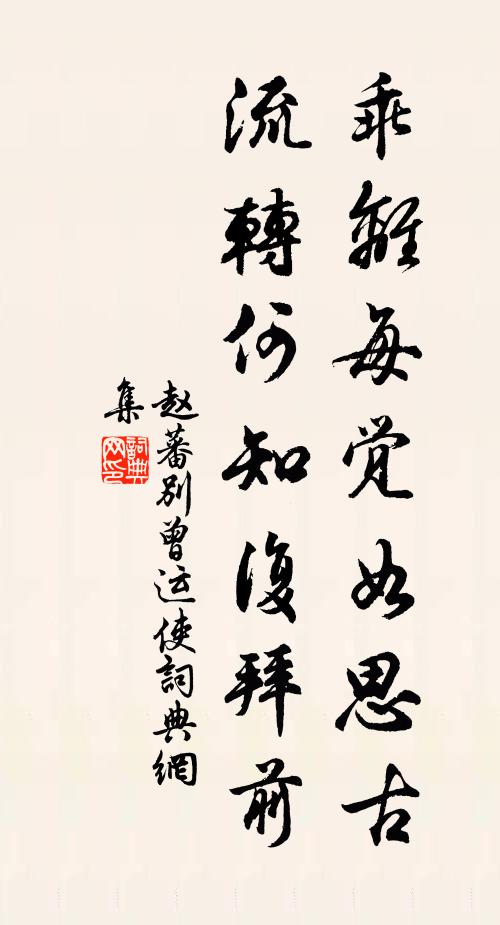 乖離每覚如思古
流轉何知復拜前
赵蕃別曾运使詞典網
集
詞典網印